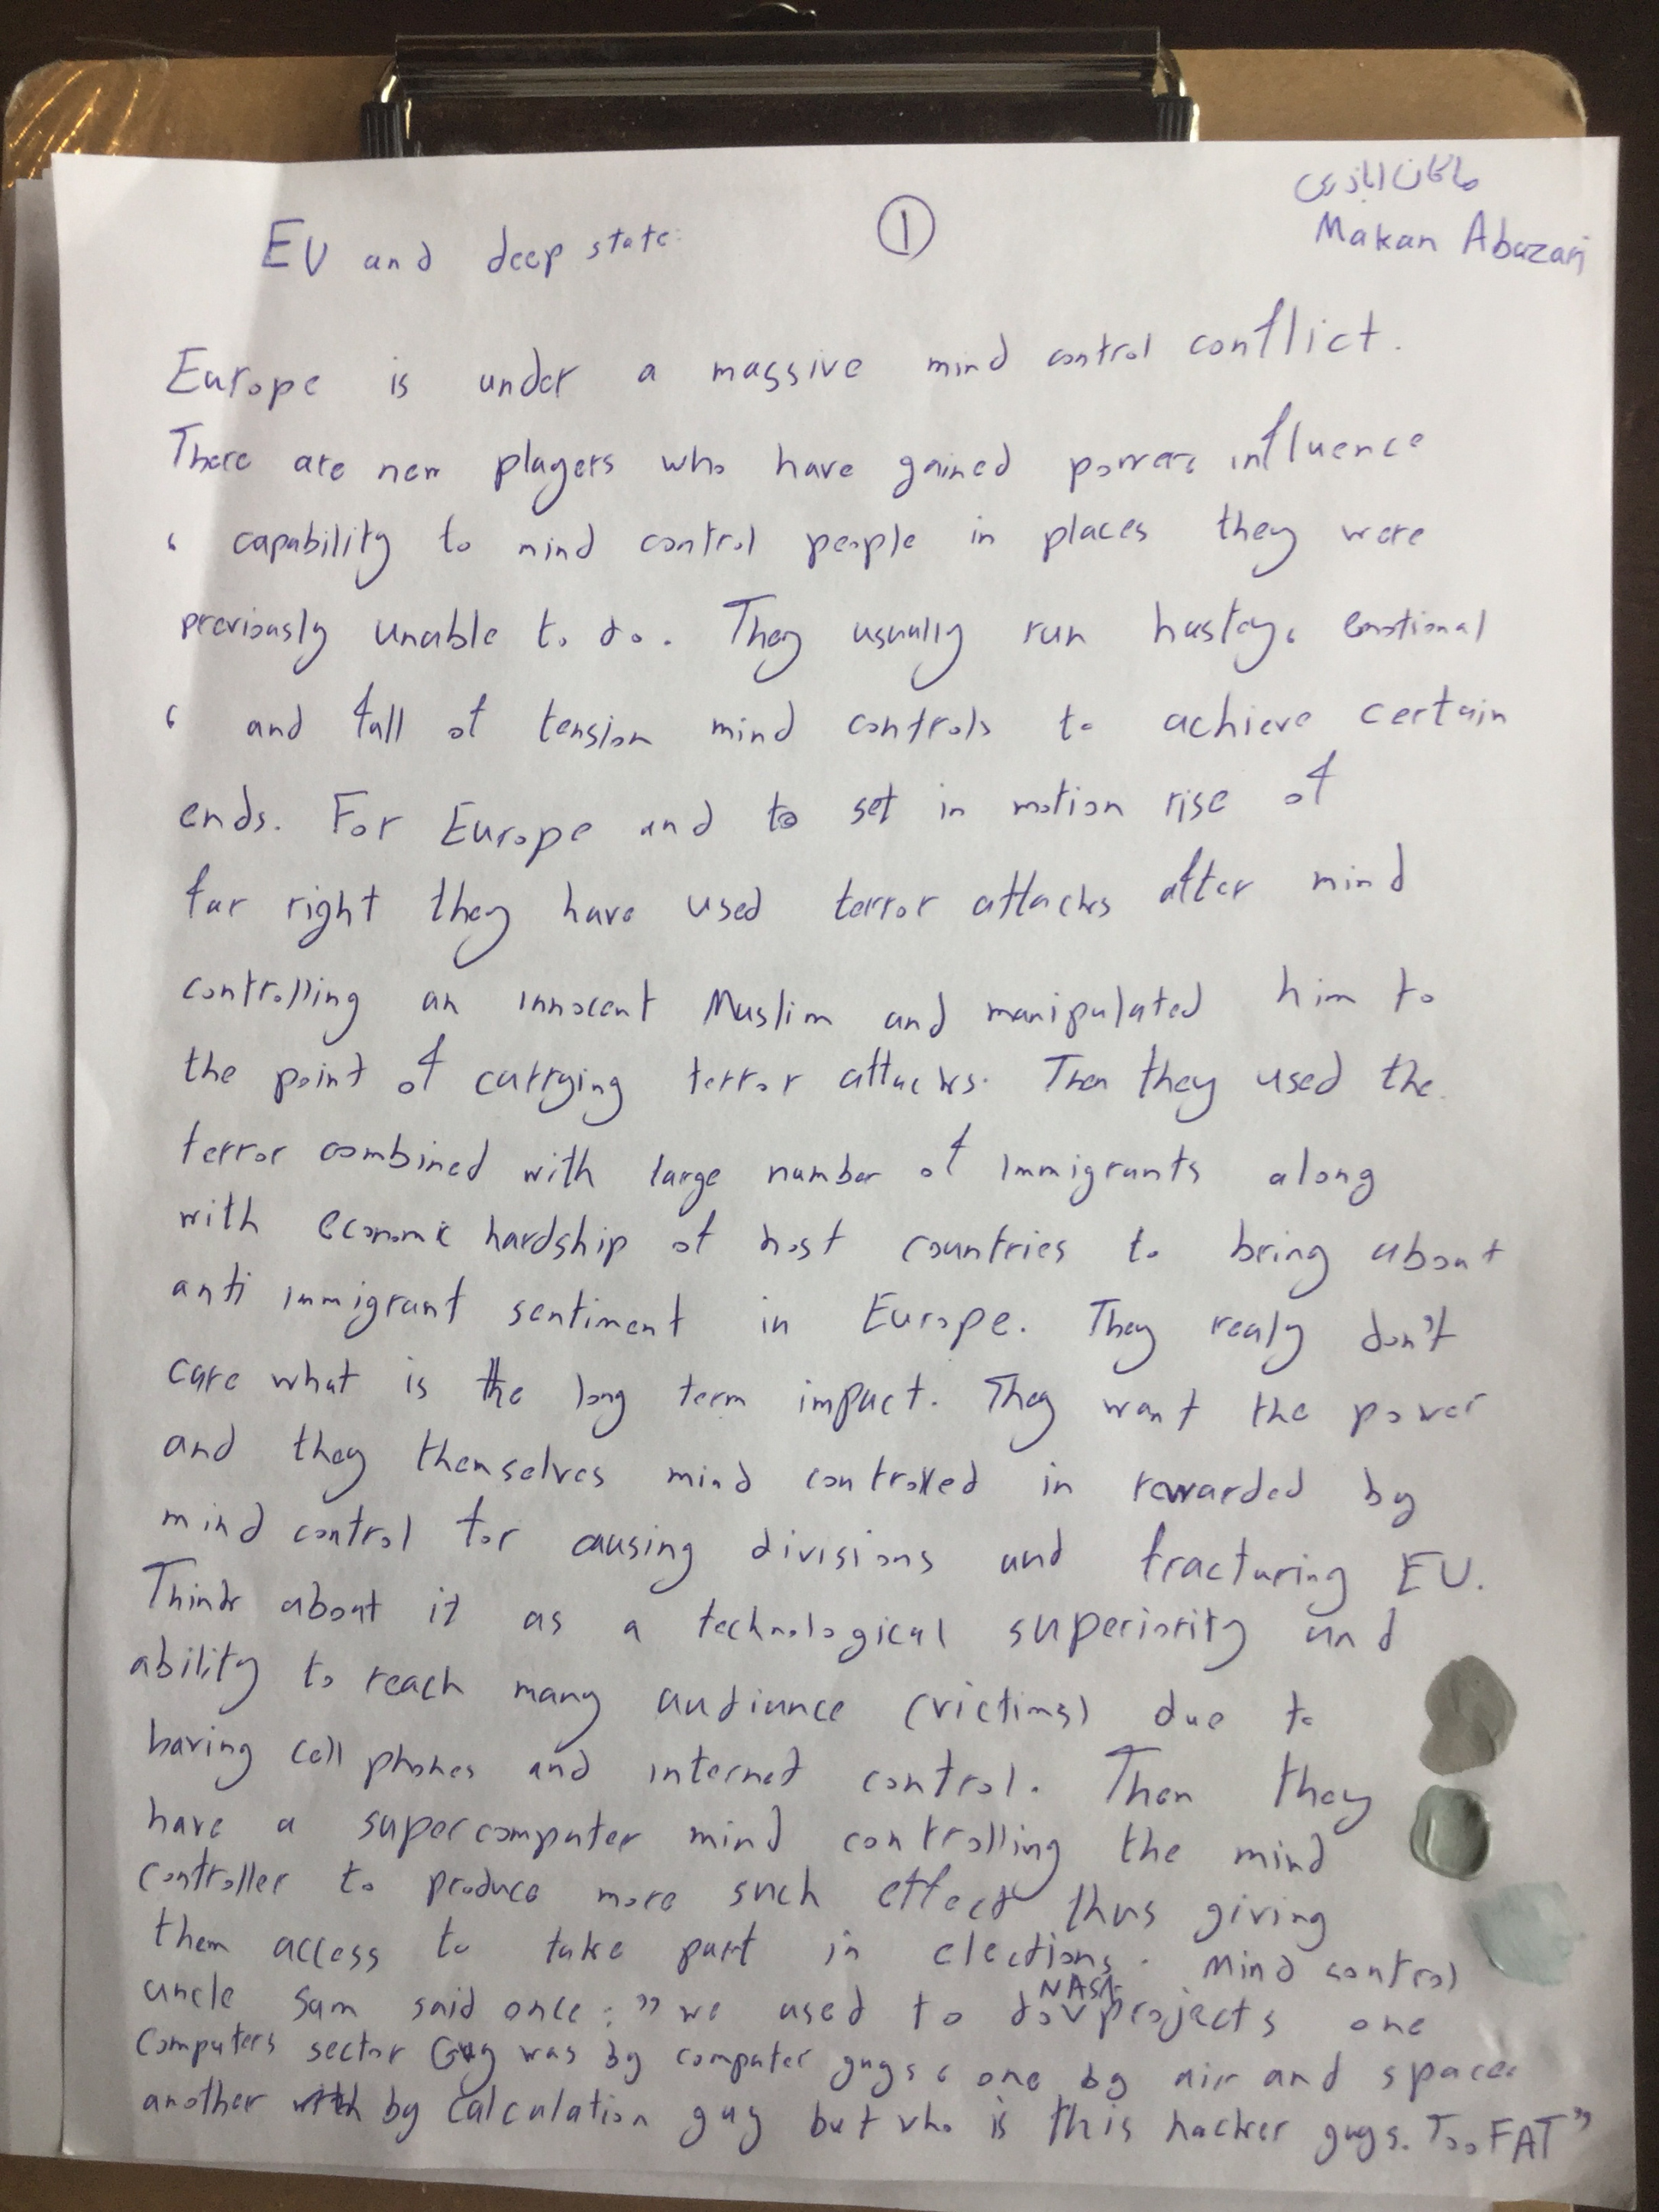 ماکان اباذری
Makan Abazari
①
EU and deep state:
Europe is under a massive mind control conflict.
There are new players who have gained power، influence
، capability to mind control people in places they were
previously unable to do. They usually run hastey، emotional
، and fall of tension mind controls to achieve certain
ends. For Europe and to set in motion rise of
far right they have used terror attacks after mind
controlling an innocent Muslim and manipulated him to
the point of carrying terror attacks. Then they used the
terror combined with large number of immigrants along
with economic hardship of host countries to bring about
anti immigrant sentiment in Europe. They realy don't
care what is the long term impact. They want the power
and they themselves mind controlled in rewarded by
mind control for causing divisions and fracturing EU.
Think about it as a technological superiority and
ability to reach many audiance (victims) due to
having cell phones and internet control. Then they
have a supercomputer mind controlling the mind
controller to produce more such effect thus giving
them access to take part in elections. Mind control
uncle Sam said once: "we used to do NASA projects one
Computers sector Guy was by computer guys، one by air and space،
another by calculation guy but who is this hacker guys. Too FAT"